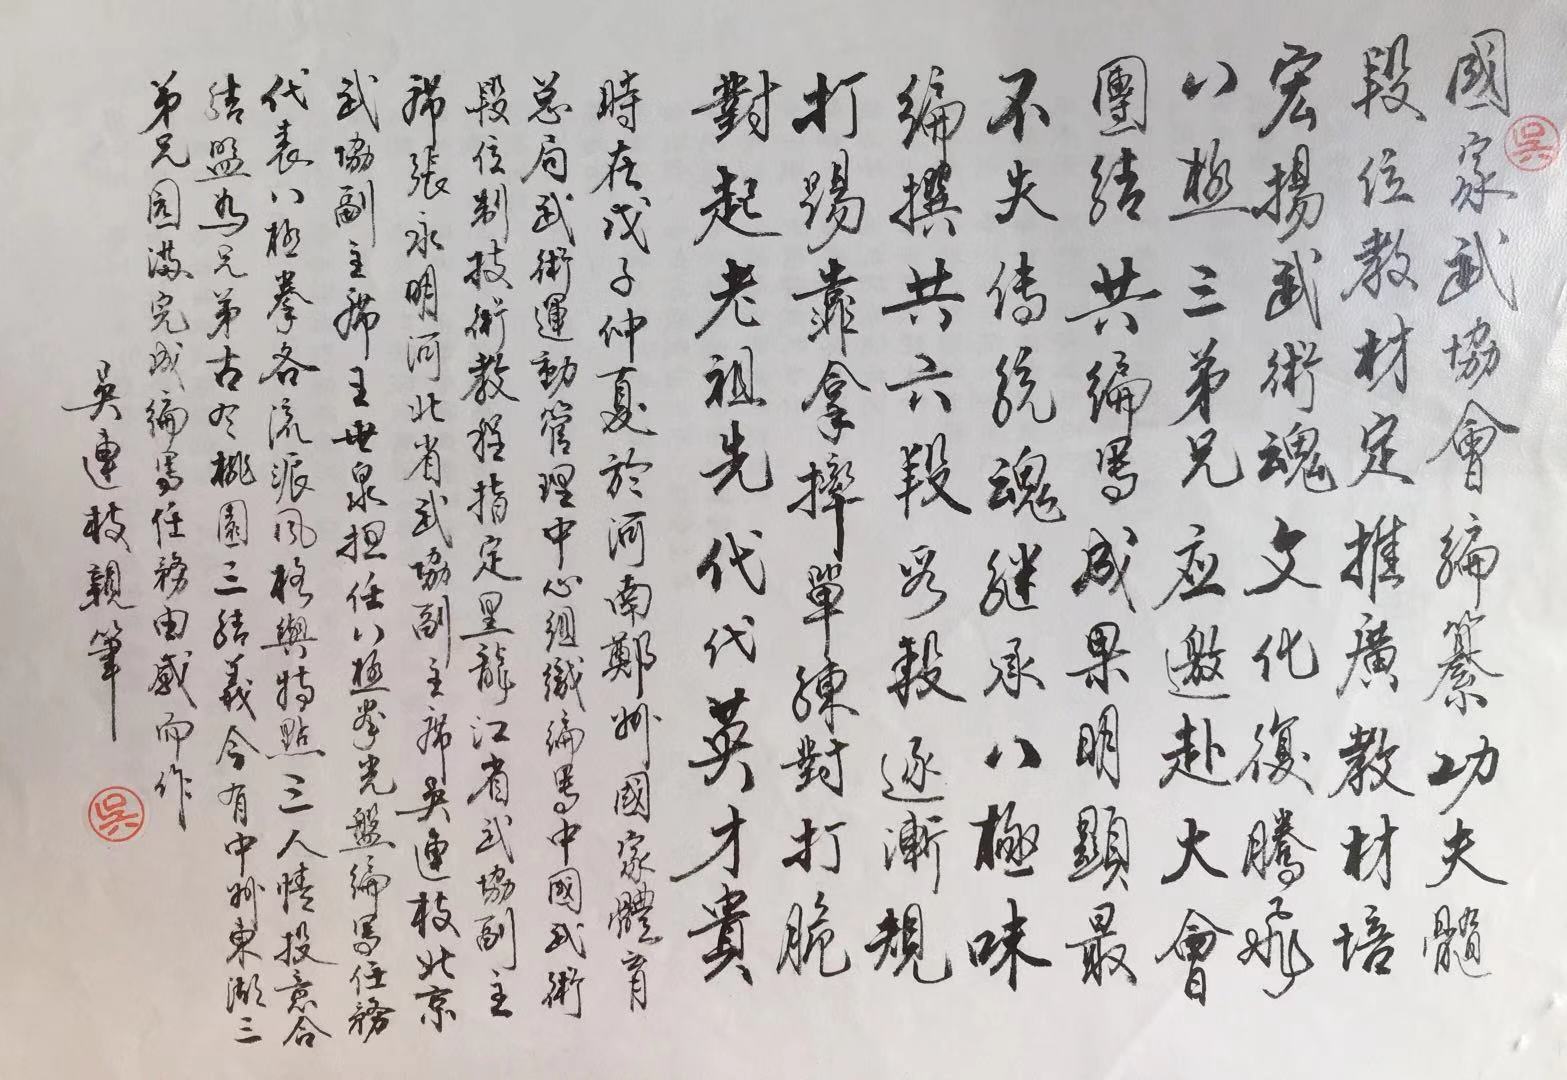 國家武協會編纂功夫髓
段位教材定推廣教材培
宏揚武術魂文化復騰飛
八極三弟兄应邀赴大會
團结共編写成果明顯最
不失传统魂继承八極味
編撰共六段另毅逐漸規
打踢靠拿摔單練對打脆
對起老祖先代代英才貴
時在戊子仲夏於河南鄭州國家體育
总局武術運動管理中心组織編写中國武術
段位制技術教程指定黑龍江省武協副主
席張永明河北省武協副主席吳連枝北京
武協副主席王世泉担任八極拳光盤編写任務
代表八極拳各流派风格與特點三人情投意合
结盟为兄弟古有桃園三结義今有中州東湖三
弟兄园满完成編写任務由感而作
吳連枝親筆
吳
吳